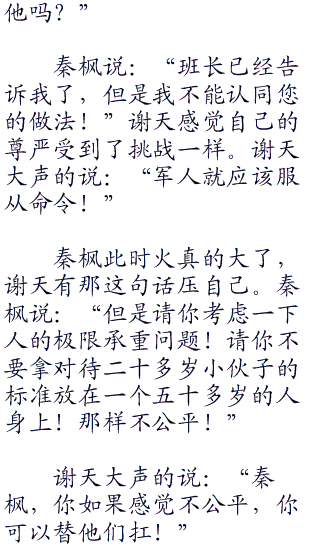 他吗？”
秦枫说：“班长已经告
诉我了，但是我不能认同您
的做法！”谢天感觉自己的
尊严受到了挑战一样。谢天
大声的说：“军人就应该服
从命令！”
秦枫此时火真的大了，
谢天有那这句话压自己。秦
枫说：“但是请你考虑一下
人的极限承重问题！请你不
要拿对待二十多岁小伙子的
标准放在一个五十多岁的人
身上！那样不公平！”
谢天大声的说：“秦
枫，你如果感觉不公平，你
可以替他们扛！”